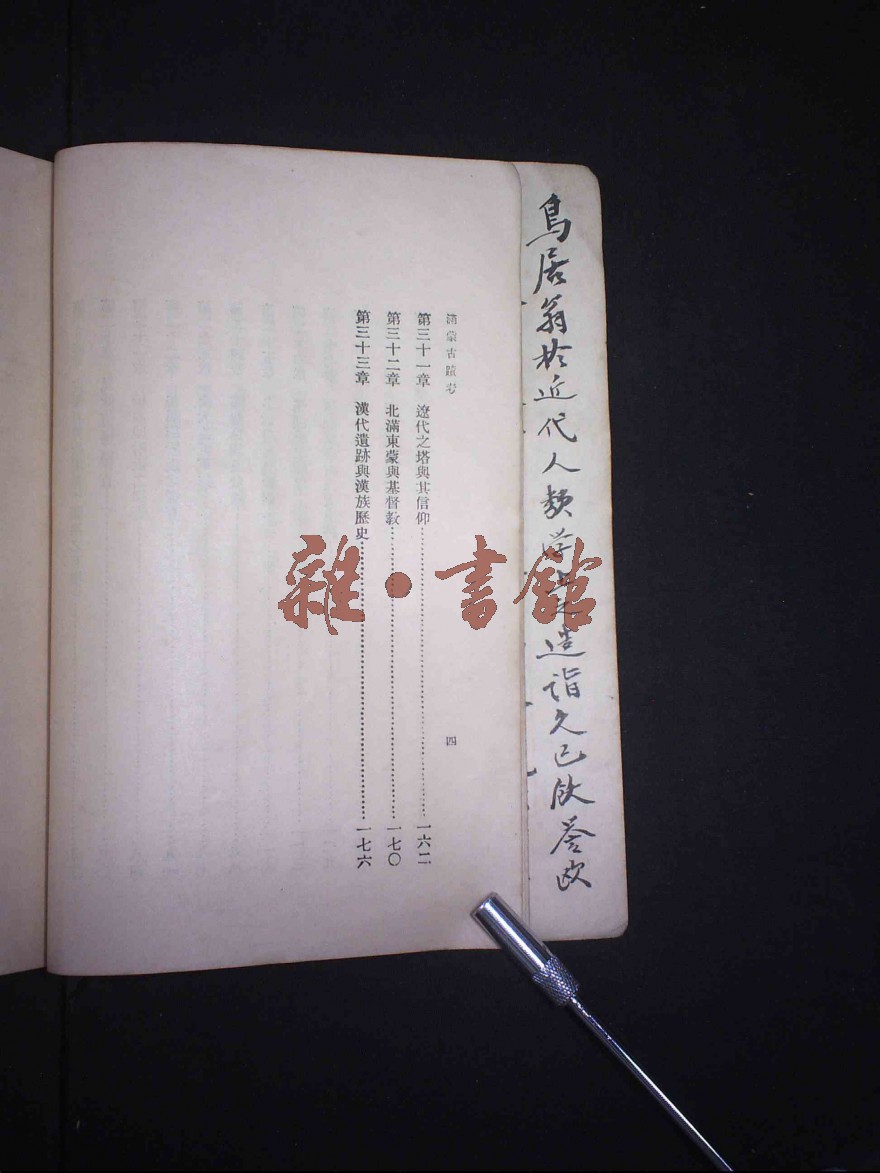 鳥居翁於近代人類学上之造詣久已飲譽欧
滿蒙古蹟考
四
第三十一章 遼代之塔與其信仰……一六二
第三十二章 北滿東蒙與基督教……一七〇
第三十三章 漢代遺跡與漢族歷史……一七六
雜·書館